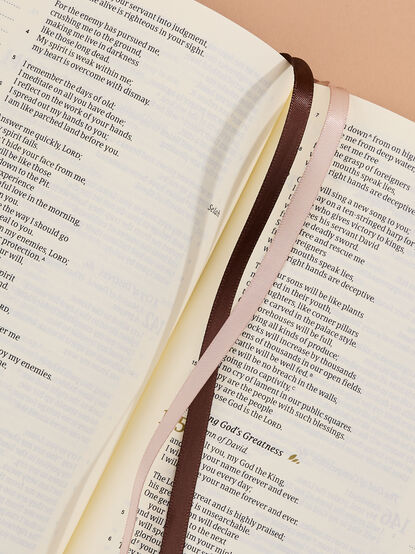 your servant into judgment,
e alive is righteous in your sight.
For the enemy has pursued me,
crushing me to the ground
making me live in darkness
4
like those long dead.
My spirit is weak within me;
my heart is overcome with dismay.
5
I remember the days of old;
I meditate on all you have done;
I reflect on the work of your hands.
6
I spread out my hands to you;
I am like parched land before you.
nswer me quickly, LORD;
spirit fails.
t hide your face from me,
ill be like those
down to the Pit.
erience
thful love in the morning,
the way I should go
eal to you.
m my enemies, LORD;
protection.
ur will,
pirit
el
ver me
y my enemies.
Selah
7
down from on high
me from deep water,
set me free
the grasp of foreigners
mouths speak lies,
right hands are deceptive.
will sing a new song to you;
ay on a ten-stringed harp for
who gives victory to kings,
es his servant David
deadly sword.
free and rescue me
eigners
mouths speak lies,
right hands are deceptive.
our sons will be like plants
ed in their youth,
ughters, like corner pillars
e carved in the palace style.
rehouses will be full,
ying all kinds of produce;
ocks will increase by thousands
ens of thousands in our open fields.
r cattle will be well fed.
will be no breach in the walls,
going into captivity,
no cry of lament in our public squares.
15
py are the people with such blessings.
py are the people
hose God is the LORD.
ng God's Greatness
mn of David.
lt you, my God the King,
and
your name forever and ever.
I wil
you every day;
I wil
your name forever and ever.
The L
reat and is highly praised;
his gre
is unsearchable.
One ge
tion will declare
your
to the next
and w
(d)
5